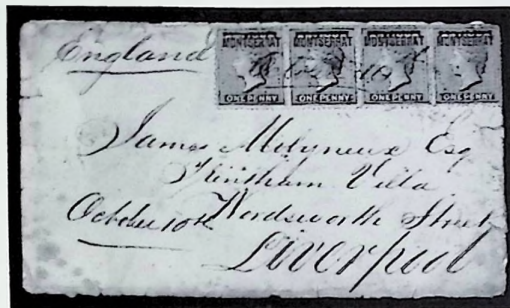 England
MONTSERRAT MONTSERRAT MONTSERRAT MONTSERRAT
ONE PENNY ONE PENNY ONE PENNY ONE PENNY
James Molyneux Esq
Villa
October 10th Wordsworth Street
Liverpool